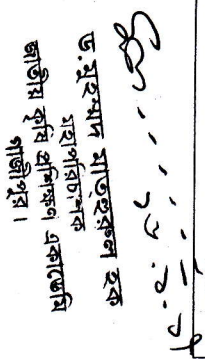 ড. মুহম্মদ মাহফুজুল হক
মহাপরিচালক
জাতীয় কৃষি প্রশিক্ষণ একাডেমি
গাজীপুর।